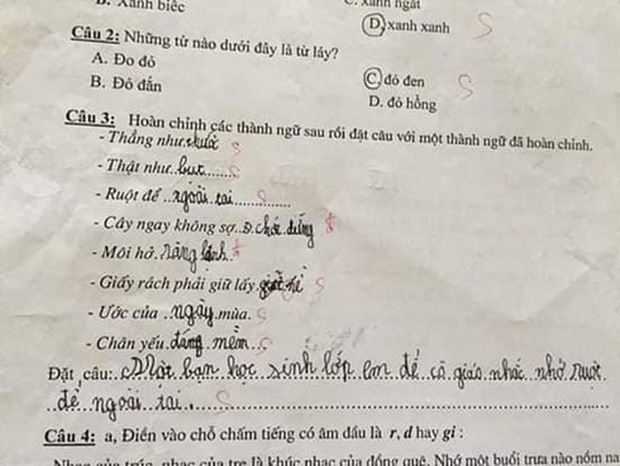 D. Xanh biếc
C. xanh ngát
D. xanh xanh S
Câu 2: Những từ nào dưới đây là từ láy?
A. Đo đỏ
B. Đỏ đắn
C. đỏ đen S
D. đỏ hồng
Câu 3: Hoàn chỉnh các thành ngữ sau rồi đặt câu với một thành ngữ đã hoàn chỉnh.
- Thẳng như S
- Thật như..bụt...... S
- Ruột để ..ngoài..tai............ S
- Cây ngay không sợ..chết..đứng đ
- Môi hở..răng lạnh.. đ
- Giấy rách phải giữ lấy S
- Ước của ..ngày..mùa. S
- Chân yếu..đáng..mềm... S
Đặt câu:..Một..bạn..học..sinh lớp..em để..cô giáo..nhắc..nhở ruột
..để..ngoài..tai.. S
Câu 4: a, Điền vào chỗ chấm tiếng có âm đầu là r, d hay gi :
Nhạc của trúc, nhạc của tre là khúc nhạc của đồng quê. Nhớ một buổi trưa nào nồm na